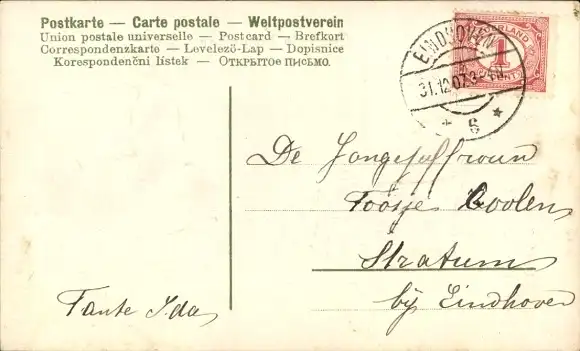 Postkarte — Carte postale — Weltpostverein
Union postale universelle — Postcard — Brefkort
Correspondenzkarte — Levelező-Lap — Dopisnice
Korespondenční lístek — Открытое письмо.
EINDHOVEN
31.12.07.3-4N
6
LAND
1
CENT
De Jongejuffrouw
Toosje Coolen
Stratum
bij Eindhoven
Tante Ida